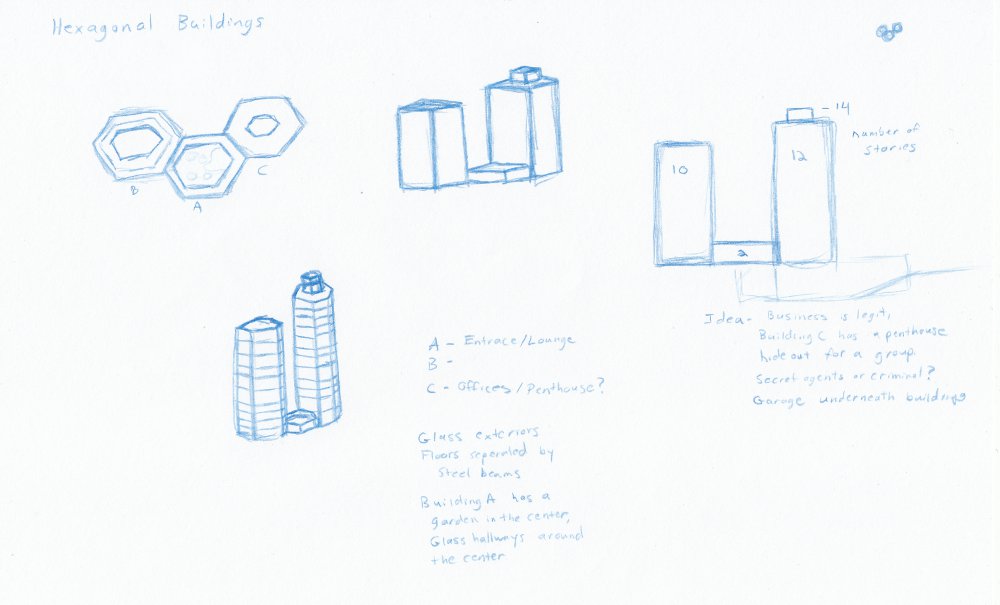 Hexagonal Buildings
B
A
C
14
Number of
Stories
10
12
2
Idea - Business is legit,
Building C has a penthouse
hide out for a group.
Secret agents or criminal?
Garage underneath buildings
A - Entrace/Lounge
B -
C - Offices/Penthouse?
Glass exteriors
Floors seperated by
Steel beams
Building A has a
garden in the center,
Glass hallways around
the center